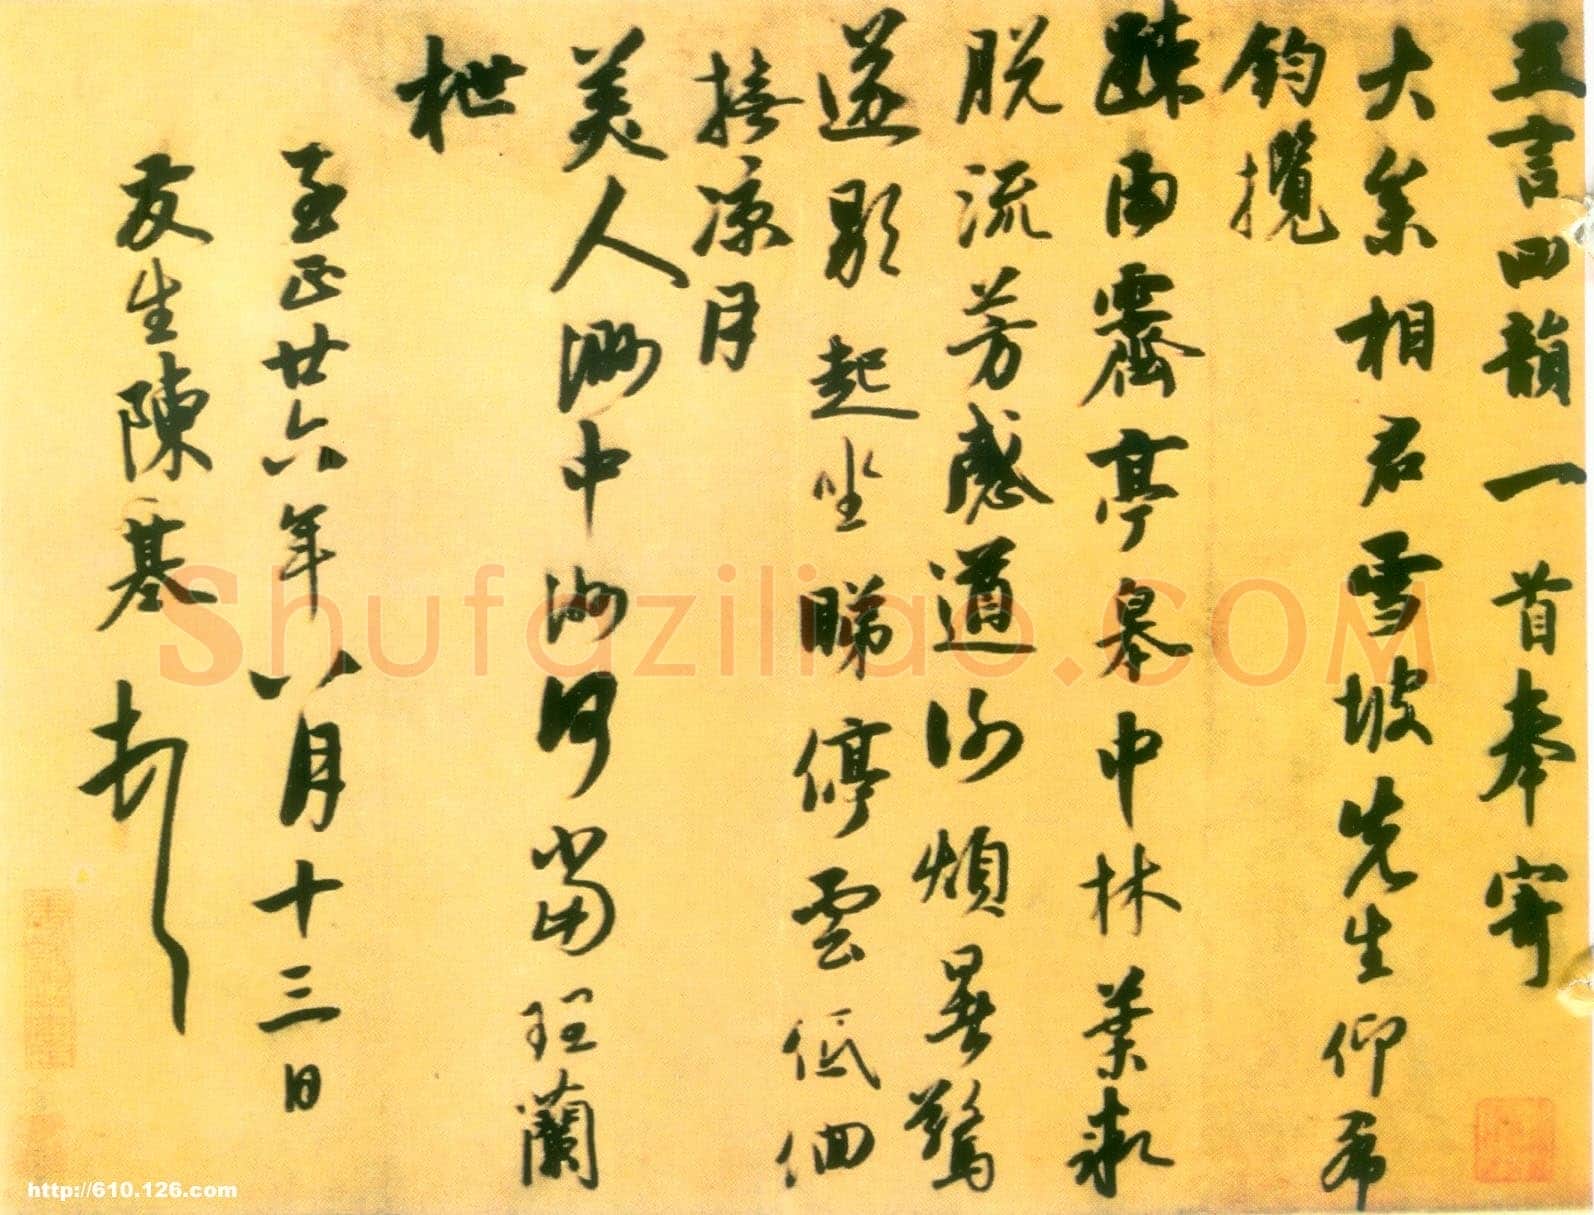 五言四韻一首奉寄
大參相君雪坡先生仰希
鈞攬
踈雨霽亭皋中林葉
脫流芳感遒謝煩暑驚
遂歇起坐睇停雲低佪
涼月
美人渺中洲何當理蘭
枻
至正廿六年八月十三日
友生陳基
Shufaziliao.COM
http://610.126.com